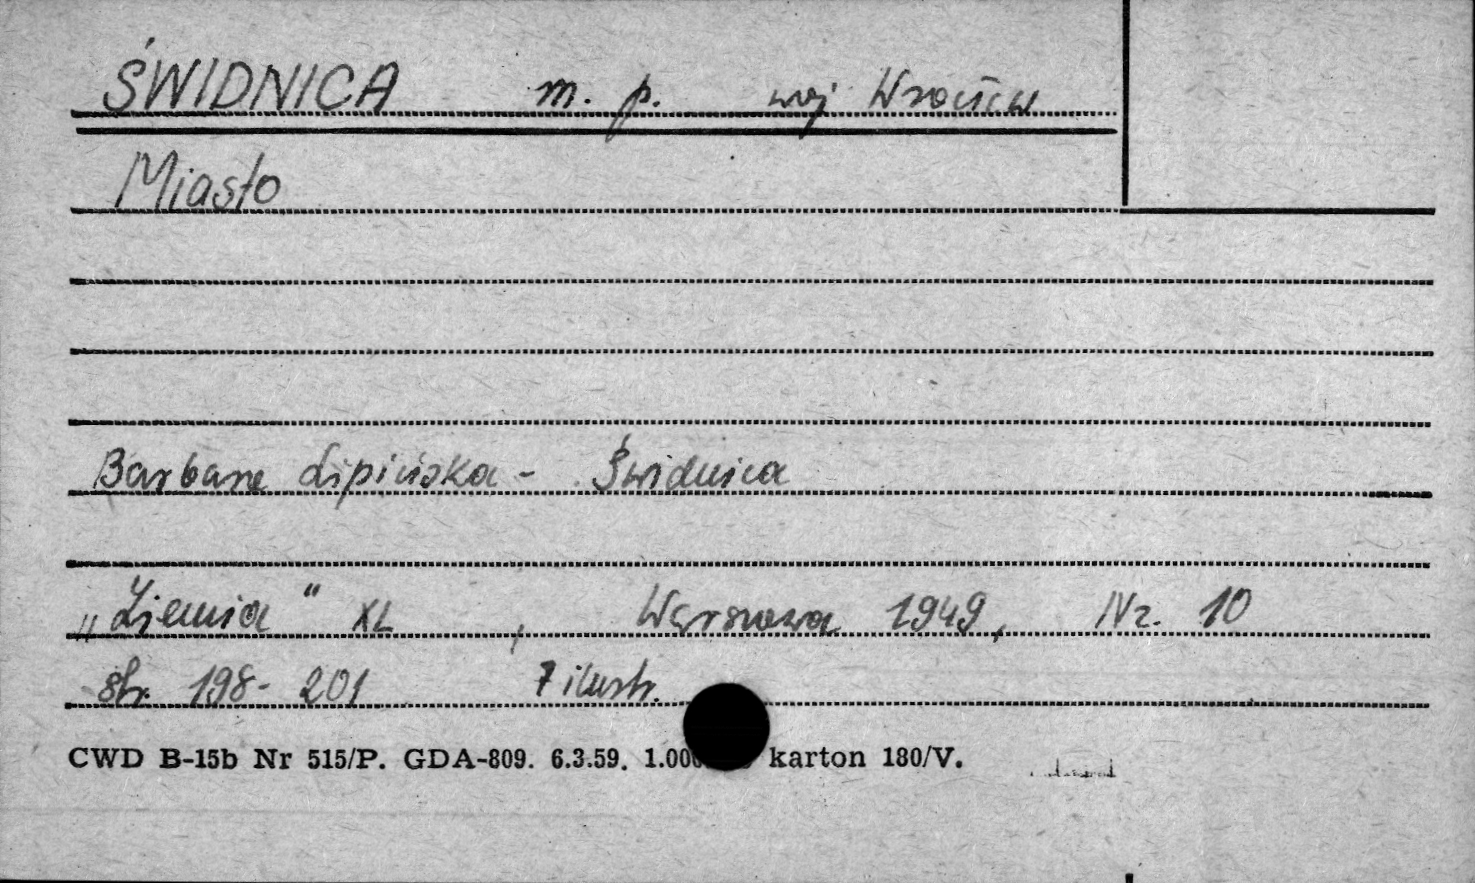 ŚWIDNICA m. p. woj Wrocław
Miasto
Barbara Lipińska - Świdnica
„Ziemia" XL , Warszawa 1949, Nr. 10
str. 198- 201 7 ilustr.
CWD B-15b Nr 515/P. GDA-809. 6.3.59. karton 180/V.